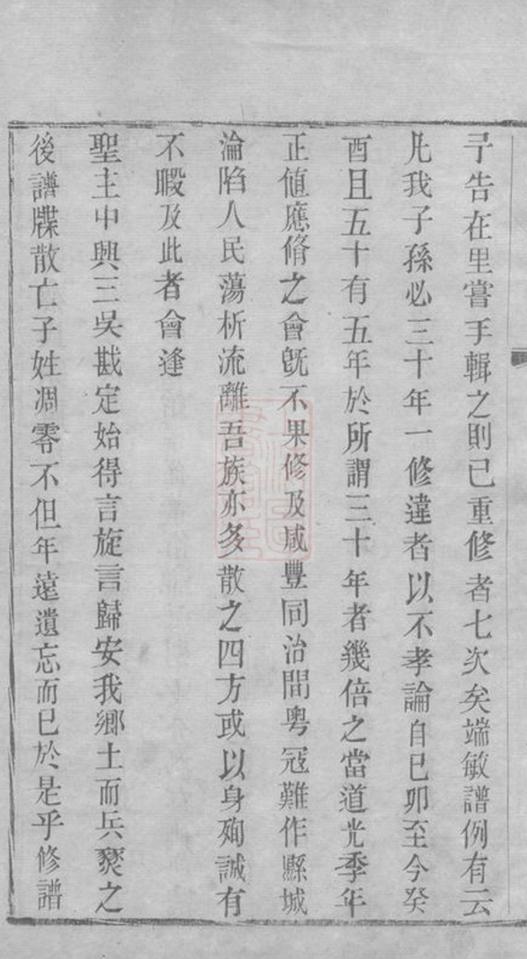 予告在里嘗手輯之則已重修者七次矣端敏譜例有云
凡我子孫必三十年一修違者以不孝論自已卯至今癸
酉且五十有五年於所謂三十年者幾倍之當道光季年
正値應脩之會旣不果修及咸豐同治間粤冦難作縣城
淪陷人民蕩析流離吾族亦多散之四方或以身殉誠有
不暇及此者會逢
聖主中興三吳戡定始得言旋言歸安我鄉土而兵燹之
後譜牒散亡子姓凋零不但年遠遺忘而已於是乎修譜